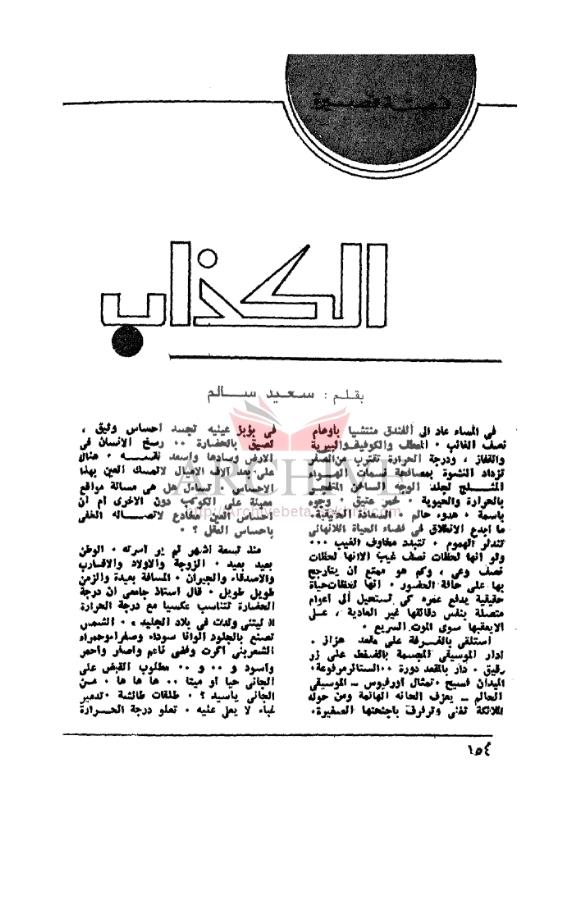 قصة قصيرة
الكذاب
بقلم : سعيد سالم
في المساء عاد الى الفندق منتشيا بأوهام
نصف الغائب ٠ المعطف والكوفية والبيرية
والقفاز ، ودرجة الحرارة تقترب من الصفر
تزداد النشوة بمصافحة نسمات الهواء
المثلج لجلد الوجه الساخن المتفجر
بالحرارة والحيوية ٠ خمر عتيق ٠ وجوه
باسمة ٠ هدوء حالم ٠ السعادة الحقيقية٠
ما ابدع الانطلاق في فضاء الحياة اللانهائي
تندثر الهموم ٠ تتبدد مخاوف الغيب ٠٠٠
ولو انها لحظات نصف غيب الا انها لحظات
نصف وعى ، وكم هو ممتع ان يتأرجح
بها على حافة الحضور ٠ انها لحظات حياة
حقيقية يدفع عمره كى تستحيل الى اعوام
متصلة بنفس دقائقها غير العادية ، على
الا يعقبها سوى الموت السريع ٠
استلقى بالغرفة على مقعد هزاز ٠
ادار الموسيقى المجسمة بالضغط على زر
رقيق ٠ دار بالمقعد دورة ٠٠ الستائر مرفوعة٠
الميدان فسيح ٠ تمثال اورفيوس ــ الموسيقى
الحالم ــ يعزف الحانه الهائمة ومن حوله
الملائكة تغنى وترفرف بأجنحتها الصغيرة٠
في بؤبؤ عينيه تجسد احساس وثيق ،
لصيق بالحضارة ٠٠ رسخ الانسان في
الارض وسادها واسعد نفسه ٠ هناك
على بعد آلاف الاميال لا تمسك العين بهذا
الاحساس ٠ تساءل هل هى مسألة مواقع
معينة على الكوكب دون الاخرى ام ان
احساس العين مخادع لاتصاله الخفى
باحساس العقل ؟ ٠
منذ تسعة اشهر لم ير اسرته ٠ الوطن
بعيد بعيد ٠ الزوجة والاولاد والاقارب
والاصدقاء والجيران ٠ المسافة بعيدة والزمن
طويل طويل ٠ قال استاذ جامعى ان درجة
الحضارة تتناسب عكسيا مع درجة الحرارة
٠ ليتنى ولدت في بلاد الجليد ٠ الشمس
تصنع بالجلود الوانا سوداء وصفراء وحمراء
الشعر بنى اكرت وفضى ناعم واصفر واحمر
واسود و ٠٠ و ٠٠ مطلوب القبض على
الجانى حيا او ميتا ٠٠ ها ها ها ٠ من
الجانى ياسيد ؟ ٠ طلقات طائشة ٠ تدمير
غباء لا يعلى عليه ٠ تعلو درجة الحرارة
ARCHIVE
١٥٤